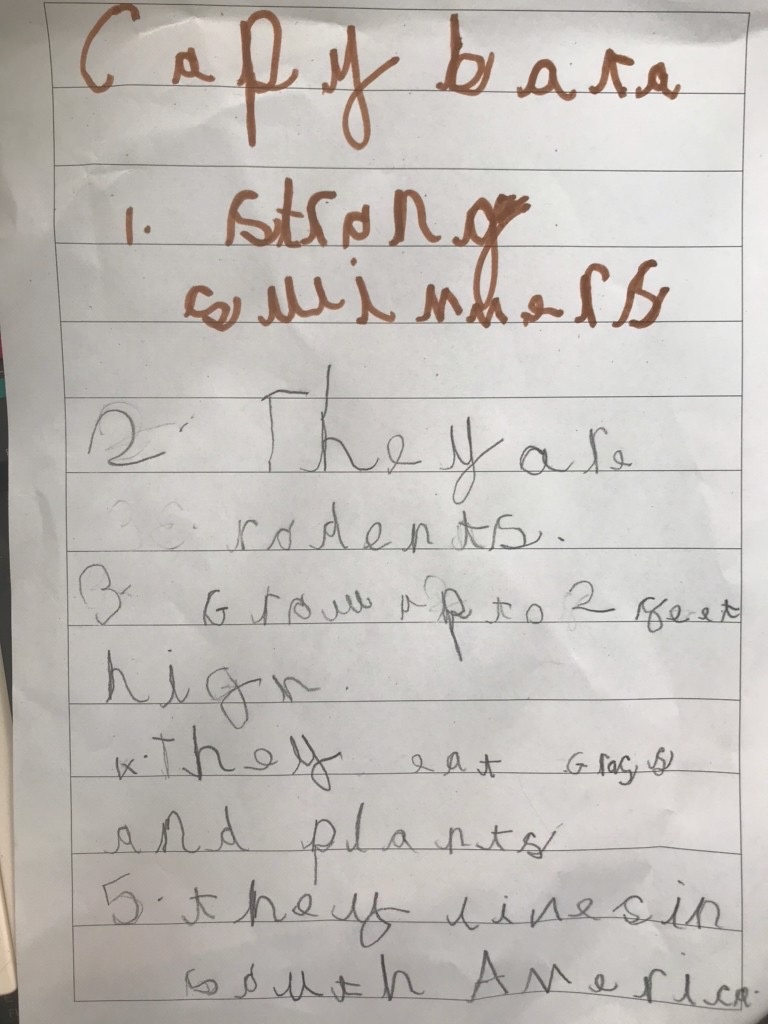 Capybara
1. strong
swimmers
2. They are
rodents.
3. Grow up to 2 feet
high.
4. They eat Grass
and plants
5. they lives in
south America.